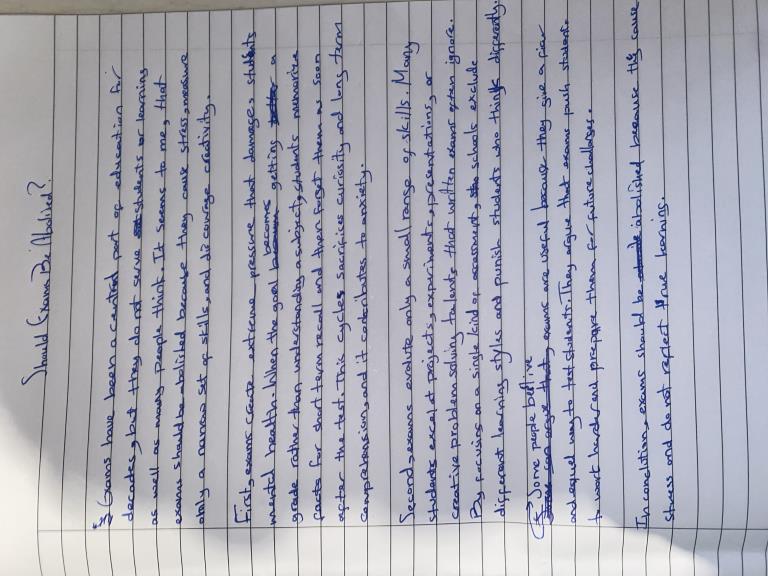 Should Exams Be Abolised?
Exams have been a central part of education for
decades, but they do not serve students or learning
as well as many people think. It seems to me, that
exams should be abolished because they cause stress, measure
only a narrow set of skills, and discourage creativity.
First, exams create extreme pressure that damages students
mental health. When the goal becomes getting a
grade rather than understanding a subject, students memorize
facts for short term recall and then forget them as soon
after the test. This cycle sacrifices curiosity and long term
comprehension, and it contributes to anxiety.
Second, exams evalute only a small range of skills. Many
students excel at projects, experiments, presentations, or
creative problem solving talents that written exams often ignore.
By focusing on a single kind of schools exclude
different learning styles and punish students who think differently.
Some people
exams are useful because they give a
and equel way to test students. They argue that exams push students
to work harder and prepare them for future challenges.
In conclution, exams should be abolished because they cause
stress and do not reflect true learning.